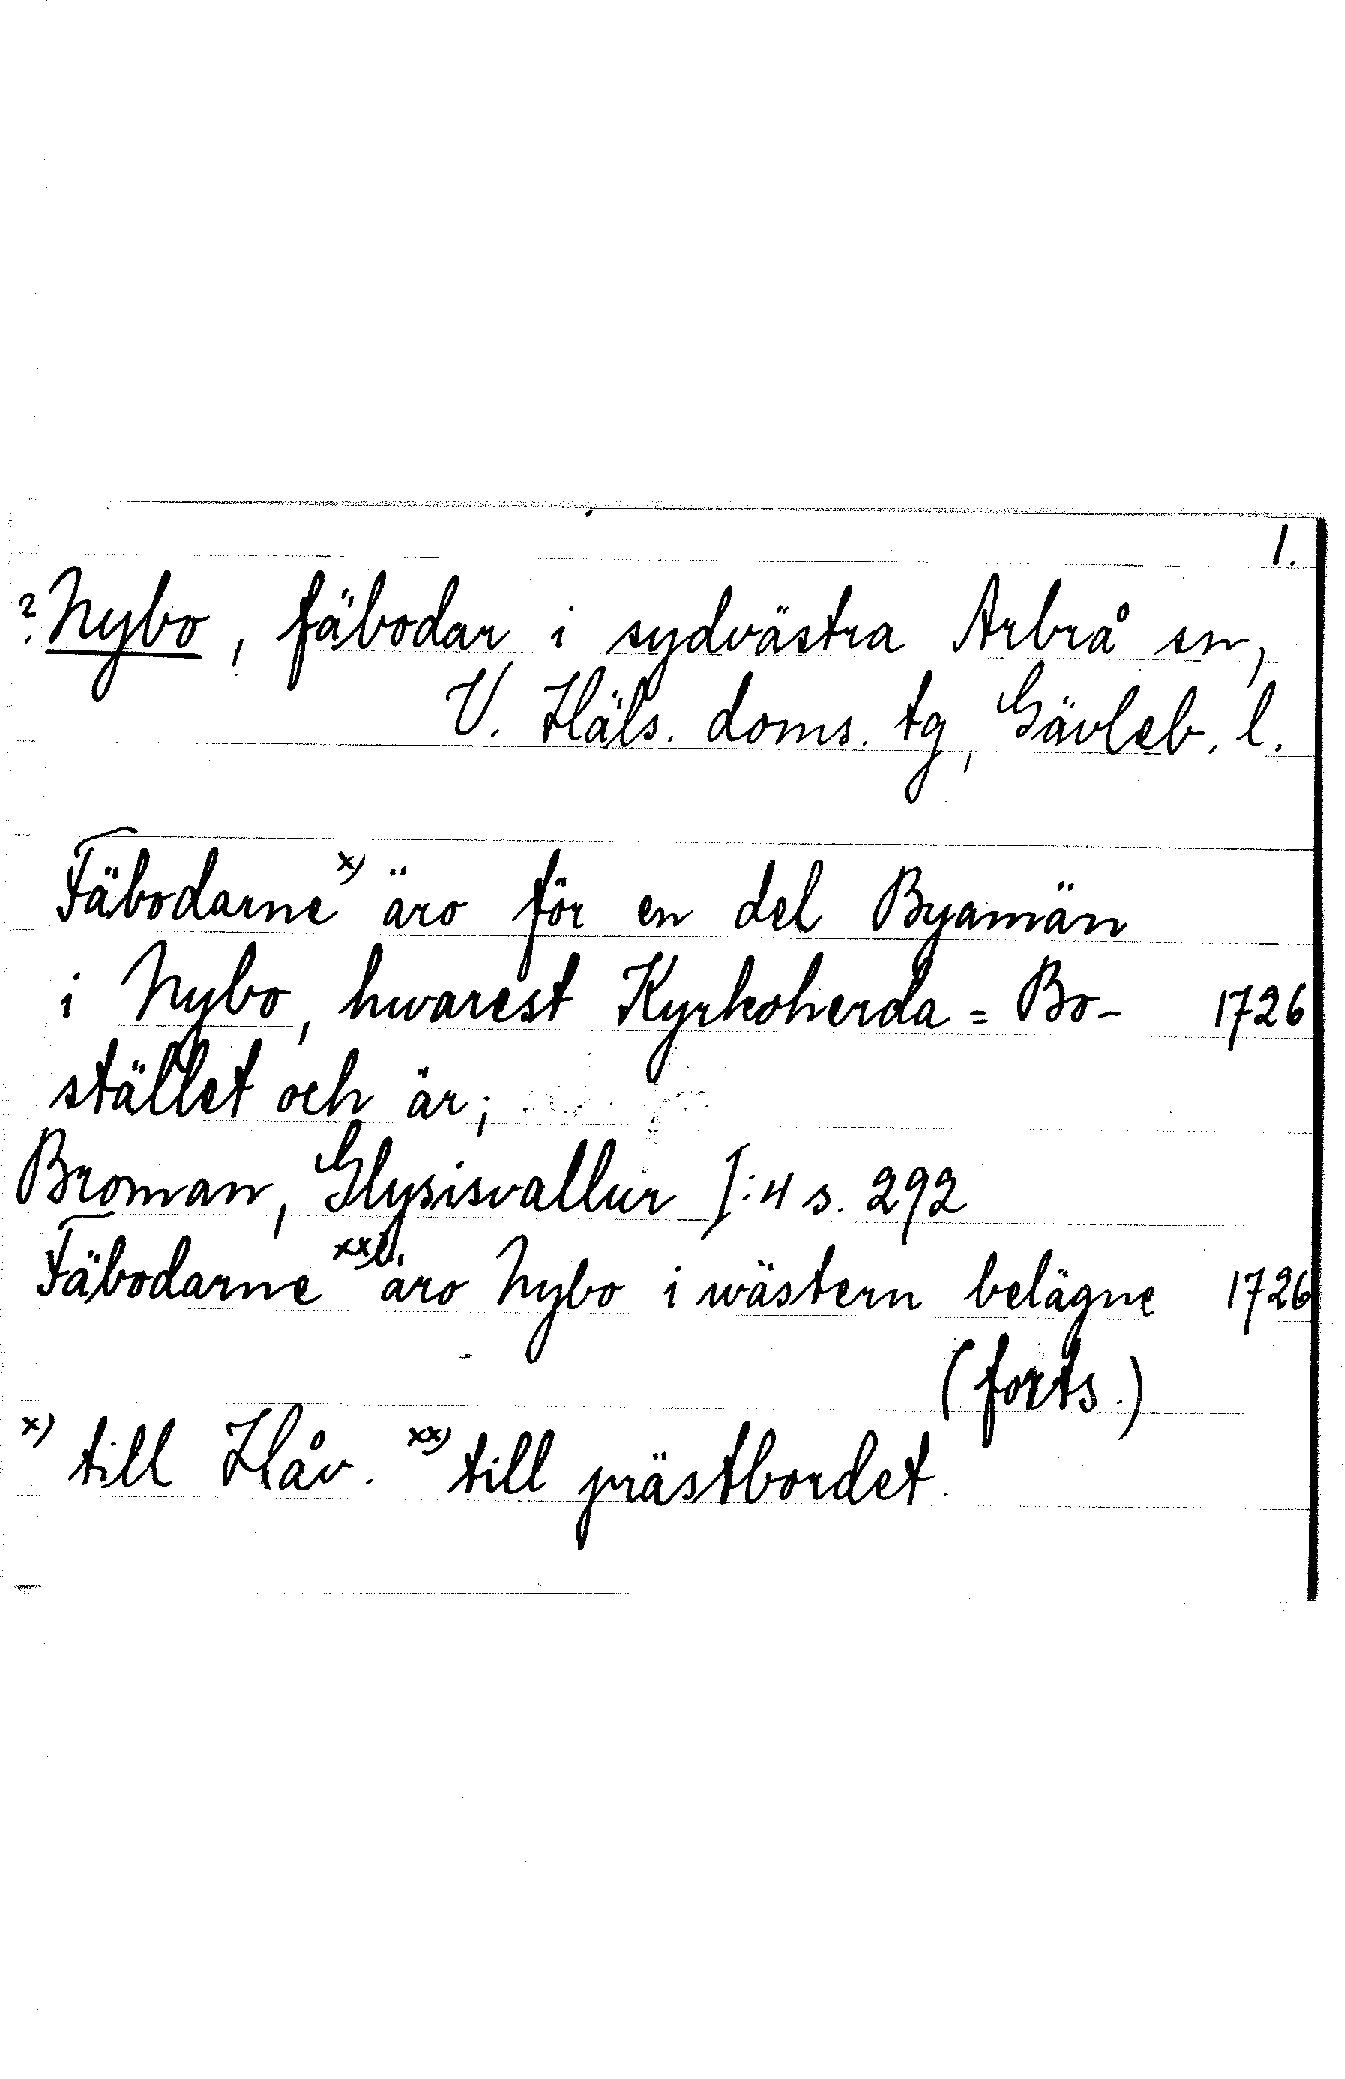 1.
? Nybo, fäbodar i sydvästra Arbrå sn,
V. Häls. doms. tg, Gävleb. l.
Fäbodarne x) äro för en del Byamän
i Nybo, hwarest Kyrkoherda = Bo- 1726
stället och är;
Broman, Glysisvallur I:4 s. 292
Fäbodarne xx) äro Nybo i wästern belägne 1726
(forts.)
x) till Håv. xx) till prästbordet.